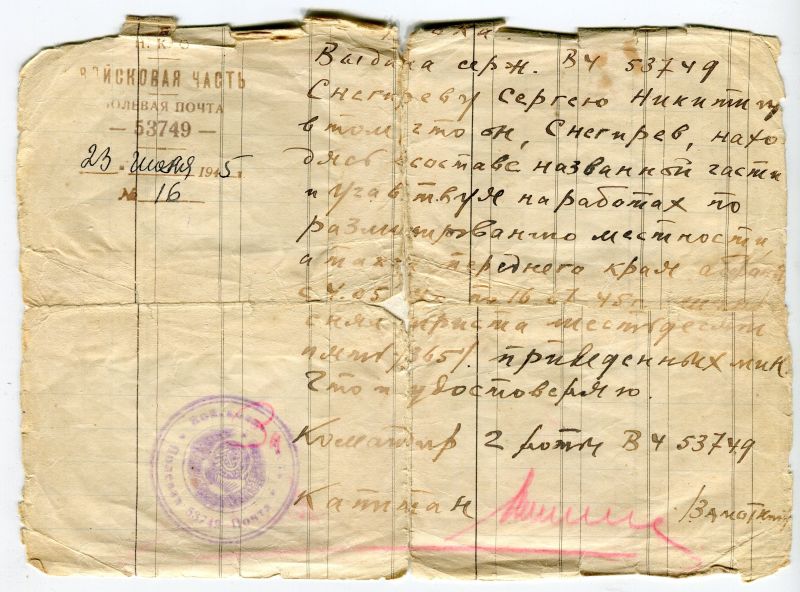 Н. К. О.
ВОЙСКОВАЯ ЧАСТЬ
ПОЛЕВАЯ ПОЧТА
— 53749 —
23 июня 1945 г.
№ 16
Выдана серж. ВЧ 53749
Снегиреву Сергею Никитичу
в том, что он, Снегирев, нахо
дясь в составе названной части
и участвуя на работах по
разминированию местности
а также переднего края обороны
с 4.05 по 16 45г.
снял триста шестьдесят
пять /365/ приведенных мин.
Что и удостоверяю.
Командир 2 роты ВЧ 53749
Капитан
За
Полевая Почта 53749